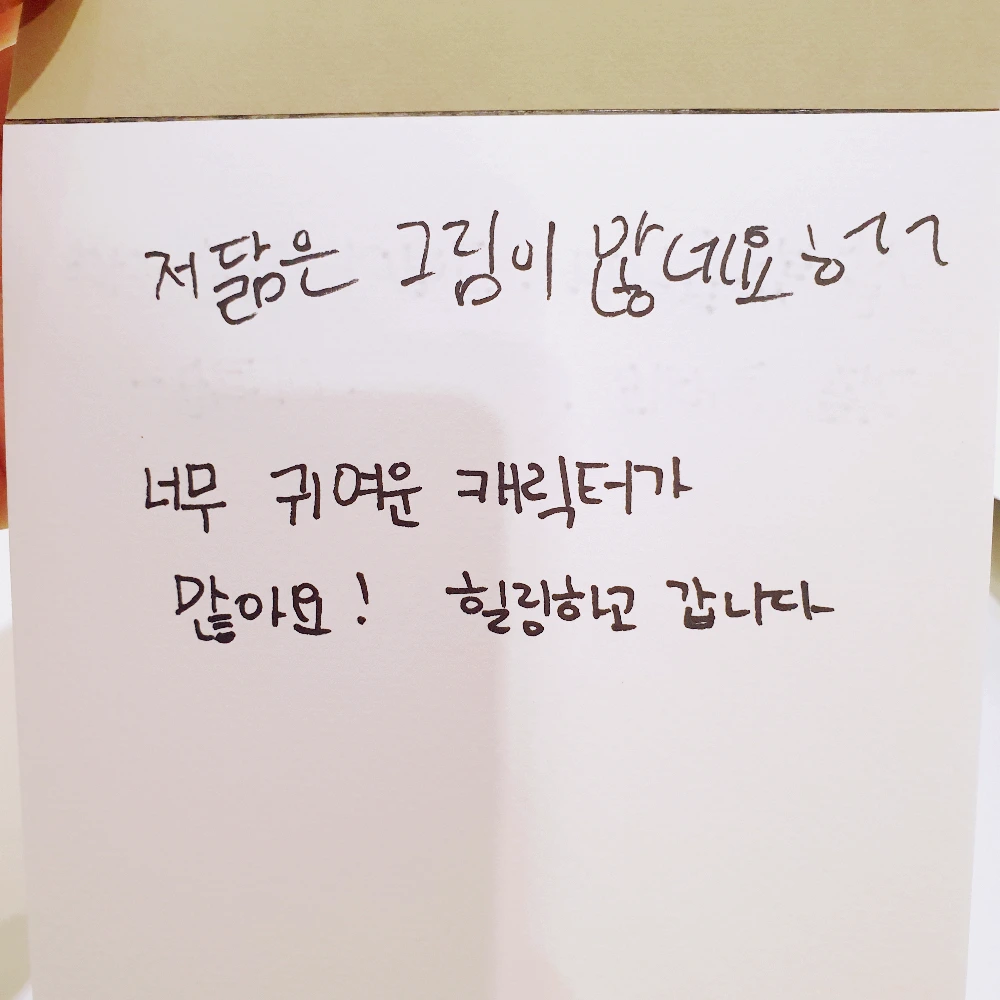 저 닮은 그림이 많네요 ㅎㄱㄱ
너무 귀여운 캐릭터가
많아요! 힐링하고 갑니다